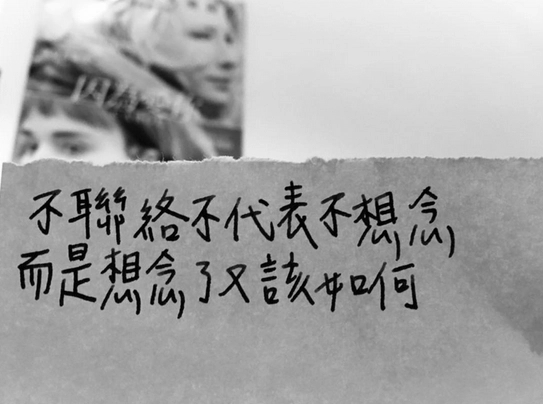 因為愛你
不聯絡不代表不想念
而是想念了又該如何